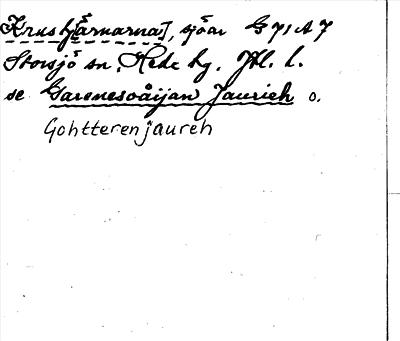 Krustjärnarna], sjöar G 71 A 7
Storsjö sn. Hede hg. Jtl. l.
se Garenesvåijan Jaurieh o.
Gohtterenjaureh